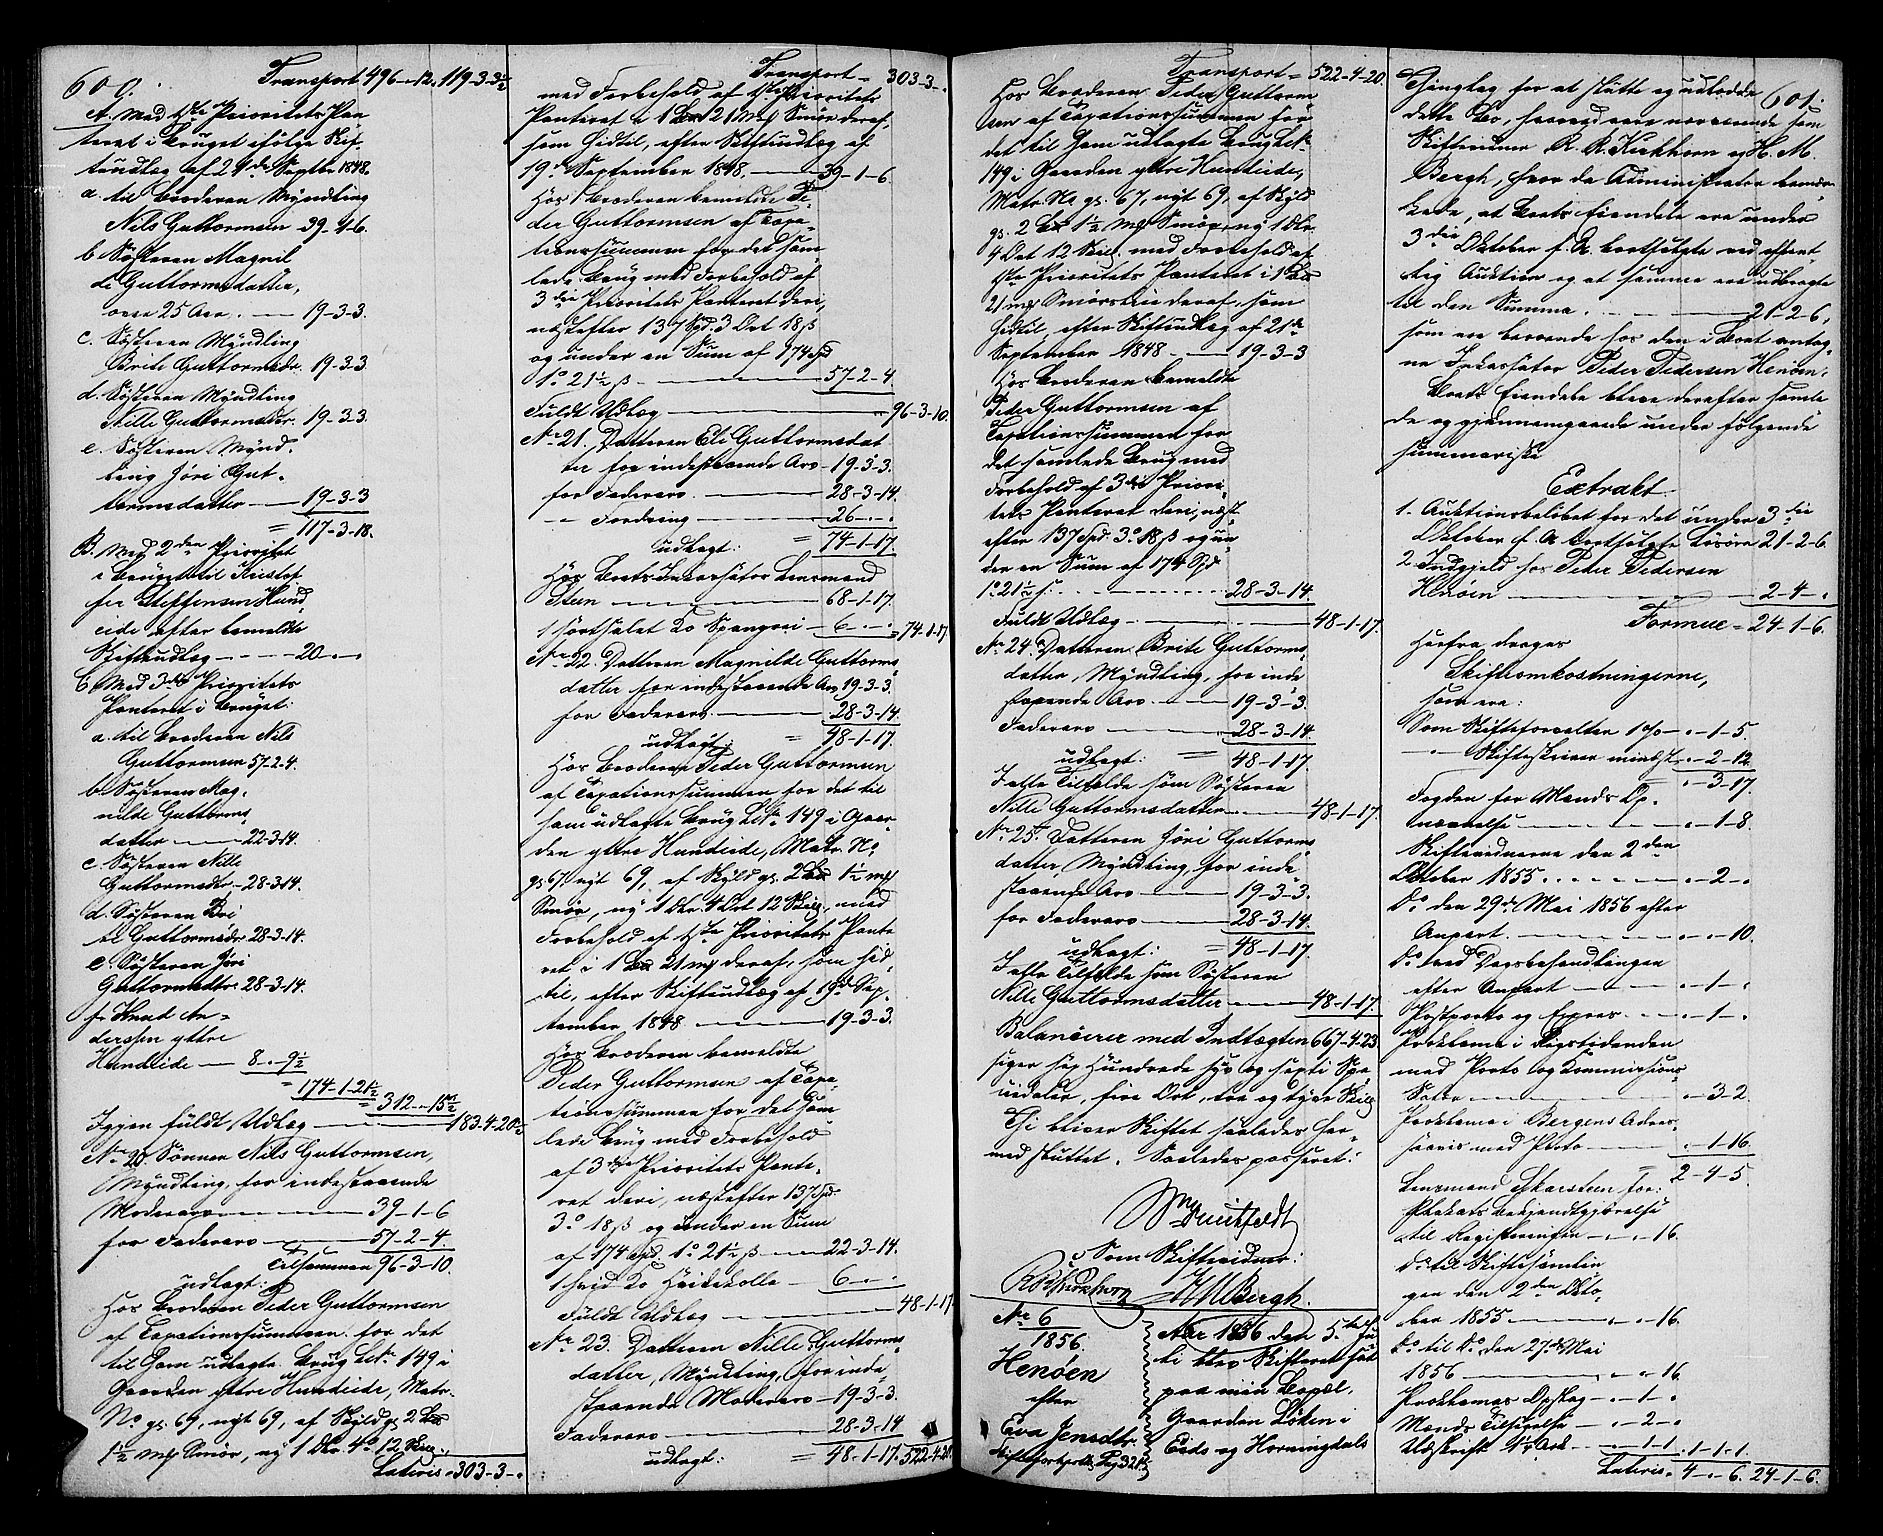 600.
Transport 496 - " - 12. 119-3-3½
A. Med 1ste Prioritets Pan
teret i Bruget ifølge Skif,
teudlæg af 21de Septbr 1848.
a. til Broderen Myndling
Nils Guttormsen 39-1-6.
b. Søsteren Magnil
de Guttormsdatter,
over 25 Aar. — 19-3-3.
c. Søsteren Myndling
Brite Guttormsdr. 19-3-3.
d. Søsteren Myndling
Nille Guttormsdtr. 19-3-3.
e. Søsteren Mynd.
ling Jøri Gut.
tormsdatter — 19-3-3
= 117-3-18.
B. Med 2den Prioritet
i Bruget til Kristof
fer Steffensen Hund
eide efter bemeldte
Skifteudlæg - - - - 20 - " - "
C. Med 3die Prioritets
Panteret i Bruget:
a. til Broderen Nils
Guttormsen 57-2-4.
b. Søsteren Mag,
nilde Guttorms,
datter — 22-3-14.
c. Søsteren Nille
Guttormsdtr. - 28-3-14.
d. Søsteren Bri
te Guttormsdr. 28-3-14.
e. Søsteren Jøri
Guttormsdtr. 28-3-14.
f. Knud An=
derssen yttre
Hundeide — 8 - " - 9½
= 174-1-21½
= 312 - " - 15½
Igjen fuldt Udlæg — 183-4-20½
No 20. Sønnen Nils Guttormsen,
Myndling, for indestaaende
Moderarv — 39-1-6
for Faderarv — 57-2-4.
Tilsammen 96-3-10.
udlagt:
Hos Broderen Peder Guttormsen
af Taxationssummen for det
til ham udlagte Brug LNo 149 i
Gaarden yttre Hundeide, Matr.
No gl. 67, nyt 69, af Skyld gl. 2 Lb
1½ mk Smør, ny 1 Dlr. 4 o 12 Skill.,
Lateris - 303-3- "
Transport - 303-3- "
med Forbehold af 1ste Prioritets
Panteret i 1 Lb 21 mk Smør deraf,
som hidtil, efter Skifteudlæg af
19de September 1848. — 39-1-6.
Hos Broderen bemeldte Pe,
der Guttormsen af Taxa,
tionssummen for det sam,
lede Brug med Forbehold af
3die Prioritets Panteret deri,
næstefter 137 Spd. 3 Ort 18 ß
og under en Sum af 174 Spd
1 o 21½ ß — 57-2-4
Fuldt Udlæg — 96-3-10.
No 21. Datteren Eli Guttormsdat
ter for indestaaende Arv - 19-3-3.
for Faderarv. — 28-3-14.
- " - Fordring — 26 - " - "
udlagt: = 74-1-17.
Hos Boets Inkassator Lensmand
Steen — 68-1-17.
1 sortsalet Ko Spangrei — 6 - " - " = 74-1-17.
No 22. Datteren Magnilde Guttorms,
datter for indestaaende Arv 19-3-3.
for Faderarv. — 28-3-14.
udlagt: = 48-1-17.
Hos Broderen Peder Guttormsen
af Taxationssummen for det til
ham udlagte Brug LNo 149 i Gaar,
den yttre Hundeide, Matr. No
gl 67, nyt 69, af Skyld gl. 2 Lb 1½ mk
Smør, ny 1 Dlr. 4 Ort 12 Skill., med
Forbehold af 1ste Prioritets Pante
ret i 1 Lb 21 mk deraf, som hid,
til, efter Skifteudlæg af 19de Sep,
tember 1848 — 19-3-3.
Hos Broderen bemeldte
Peder Guttormsen af Taxa,
tionssummen for det sam
lede Brug med Forbehold
af 3die Prioritets Pante,
ret deri, næstefter 137 Spd.
3 o 18 ß og under en Sum
af 174 Spd. 1 o 21½ ß — 22-3-14.
1 hvid Ko — 6 - " - "
Fuldt Udlæg — 48-1-17.
No 23. Datteren Nille Guttorms,
datter, Myndling, for inde,
staaende Moderarv — 19-3-3.
Faderarv — 28-3-14
udlagt: = 48-1-17. 522-4-20.
Transport = 522-4-20.
Hos Broderen Peder Guttorm
sen af Taxationssummen for
det til ham udlagte Brug LNo
149 i Gaarden yttre Hundeide,
Matr. No gl. 67, nyt 69, af Skyld
gl. 2 Lb 1½ mk Smør, ny 1 Dlr.
4 Ort 12 Skill. med Forbehold af
1ste Prioritets Panteret i 1 Lb
21 mk Smørsleie deraf, som
hidtil, efter Skifteudlæg af 21de
September 1848 — 19-3-3
Hos Broderen bemeldte
Peder Guttormsen af
Taxationssummen for
det samlede Brug med
Forbehold af 3die Priori,
tets Panteret deri, næst,
efter 137 Spd. 3 o 18 ß og un,
der en Sum af 174 Spd
1 o 21½ ß. — 28-3-14.
Fuldt Udlæg — 48-1-17.
No 24. Datteren Brite Guttorms,
datter, Myndling, for inde
staaende Arv — 19-3-3.
Faderarv — 28-3-14.
udlagt: = 48-1-17.
I alle Tilfælde som Søsteren
Nille Guttormsdatter — 48-1-17.
No 25. Datteren Jøri Guttorms,
datter, Myndling, for inde,
staaende Arv — 19-3-3.
for Faderarv — 28-3-14.
udlagt: = 48-1-17.
I alle Tilfælde som Søsteren
Nille Guttormsdatter — 48-1-17.
Balancerer med Indtægten 667-4-23
siger sex Hundrede syv og sexti Spe
ciedaler, fire Ort, tre og tyve Skill.
Thi bliver Skiftet saaledes her,
med sluttet. Saaledes passeret.
Munthefeldt
Som Skiftevidner:
R R Kirkhorn HMBergh.
No 6
1856.
Henøen
efter
Eva Jensdtr.
Skifteprotokolls Pag 321
Aar 1856 den 5te Ju
li blev Skifteret sat
paa min Bopæl,
Gaarden Løken i
Eids og Hornindals
601.
Thinglag for at slutte og udlodde
dette Bo, hvorved vare nærværende som
Skiftevidner R. R. Kirkhorn og H. M.
Bergh, hvor da Administrator bemær
kede, at Boets Eiendele ere under
3die Oktober f. A. bortsolgte ved offent,
lig Auktion og at samme ere udbragte
til den Summa — 21-2-6,
som ere beroende hos den i Boet antag,
ne Inkassator Peder Pedersen Henøen.
Boets Eiendele bleve derefter samle
de og gjennemgaaede under følgende
summariske
Extrakt.
1. Auktionsbeløbet for det under 3die
Oktober f. A. bortsolgte Løsøre 21-2-6.
2. Indgjeld hos Peder Pedersen
Henøen — 2-4- "
Formue = 24-1-6.
Herfra drages
Skifteomkostningerne,
som ere:
Som Skifteforvalter 1 % - " -1-5.
- " - Skifteskriver mindst. " -2-12
" -3-17.
Fogden for Mænds Op,
nævnelse — " -1-8.
Skiftevidnerne den 2den
Oktober 1855 — " -2- "
Do den 29de Mai 1856 efter
Anpart. — " - " -10.
Do ved Dagsbehandlingen
efter Anpart — " -1- "
Postporto og Expres. — " -1- "
Proklama i Rigstidenden
med Porto og Kommissions,
Salær — " -3-2.
Proklama i Bergens Adres,
seavis med Porto — " -1-16.
2-4-5.
Lensmand Skarsteen for:
Plakats bekjendtgjørelse
til Registreringen - " - " -16.
do til Skiftesamlin
gen den 2den Okto,
ber 1855 — " - " -16.
Do til Do den 27de Mai
1856 — " - " -16.
Proklamas Opslag — " -1- "
Mænds Tilsigelse — " -2- "
Udskrift 1½ Ark — " -1-1. 1-1-1.
Lateris. 4- " -6. 24-1-6.